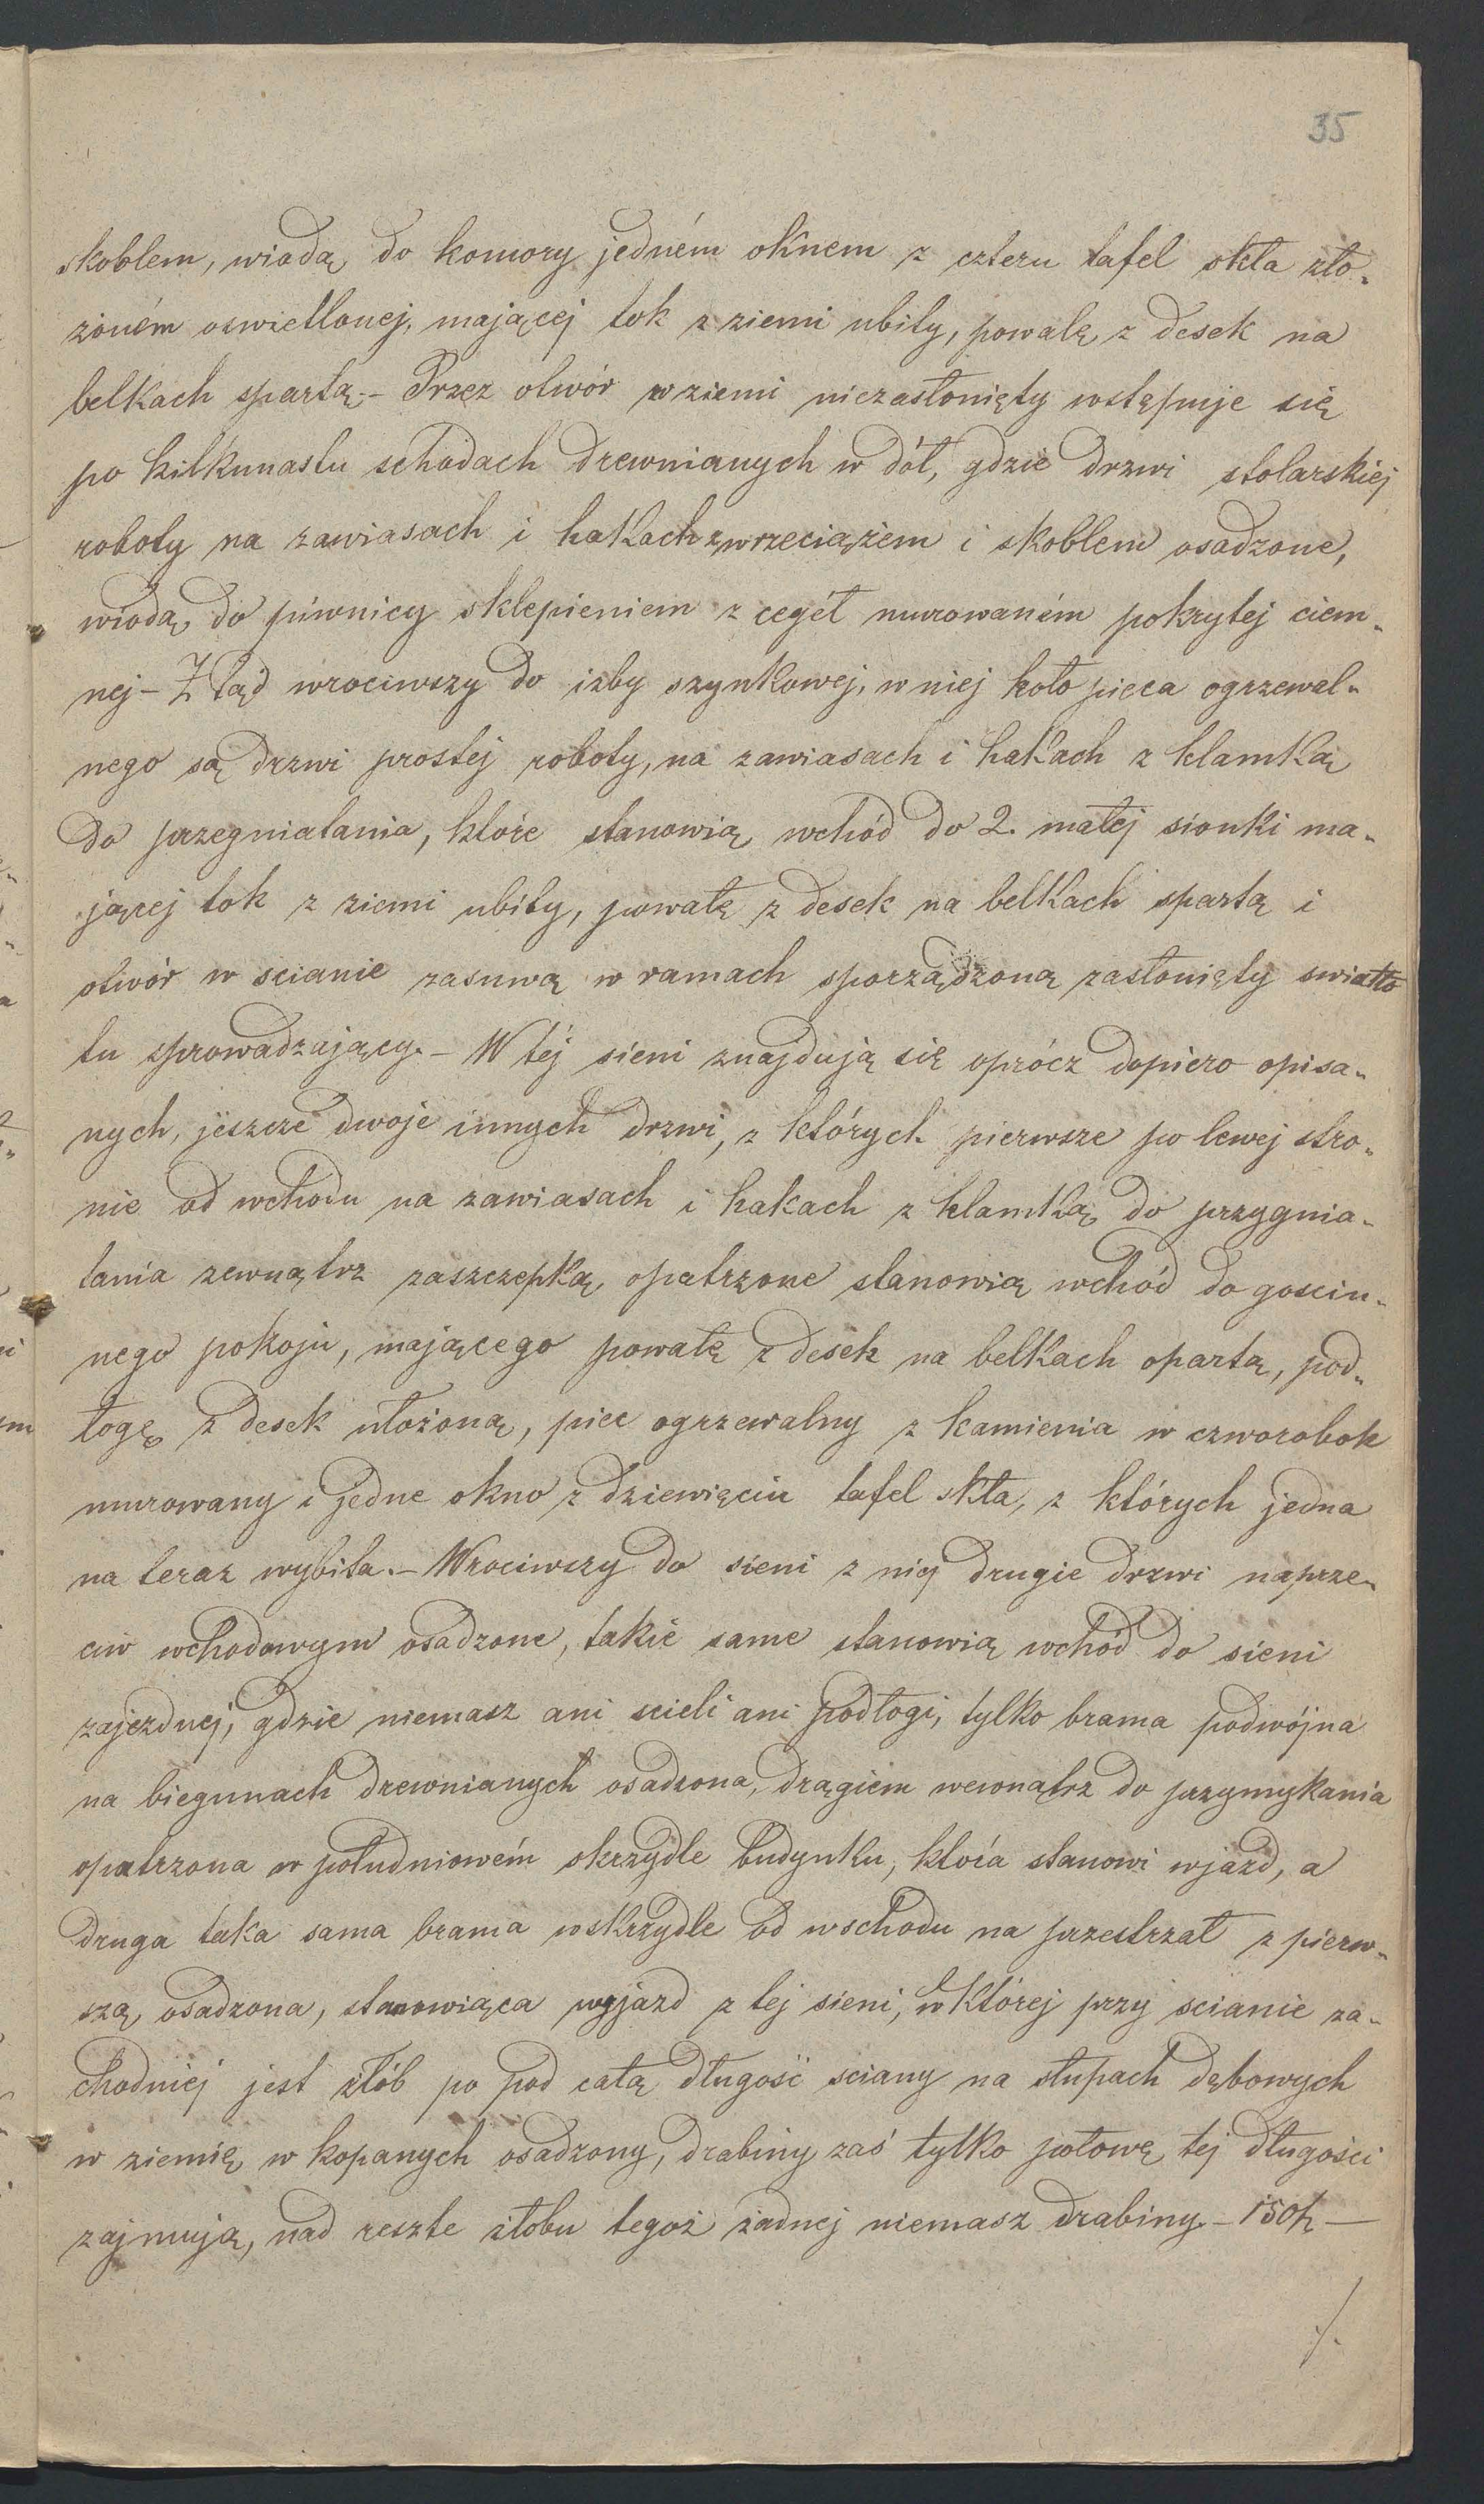 35
skoblem, wiodą do komory jedném oknem z czteru tafel skła zło-
żoném oswietlonej, mającej tok z ziemi ubity, powałę z desek na
belkach spartą.- Przez otwór w ziemi niezasłonięty wstępuje się
po kilkunastu schodach drewnianych w dół, gdzie drzwi stolarskiej
roboty na zawiasach i hakach z wrzeciążem i skoblem osadzone,
wiodą do piwnicy sklepieniem z cegéł murowaném pokrytej ciem-
nej - Z tąd wrociwszy do izby szynkowej, w niej koło pieca ogrzewal-
nego są drzwi prostej roboty, na zawiasach i hakach z klamką
do przegniatania, które stanowią wchód do 2. małej sionki ma-
jącej tok z ziemi ubity, powałę z desek na belkach spartą i
otwór w scianie zasuwą w ramach sporządzoną zasłonięty swiatło
tu sprowadzający.- W téj sieni znajdują się oprócz dopiero opisa-
nych, jeszcze dwoje innych drzwi, z których pierwsze po lewej stro-
nie od wchodu na zawiasach i hakach z klamką do przygnia-
tania zewnątrz zaszczepką opatrzone stanowią wchód do goscin-
nego pokoju, mającego powałę z desek na belkach opartą, pod-
łogę z desek ułożoną, piec ogrzewalny z kamienia w czworobok
murowany i jedne okno z dziewięciu tafel skła, z których jedna
na teraz wybita.- Wrociwszy do sieni z niej drugie drzwi naprze-
ciw wchodowym osadzone, takie same stanowią wchód do sieni
zajezdnej, gdzie niemasz ani scieli ani podłogi, tylko brama podwójna
na biegunach drewnianych osadzona, drągiem wewnątrz do przymykania
opatrzona w południowém skrzydle budynku, która stanowi wjazd, a
druga taka sama brama w skrzydle od wschodu na przestrzał z pierw-
szą osadzona, stanowiąca wyjazd z tej sieni, w której przy scianie za-
chodniej jest żłób po pod całą długość sciany na słupach dębowych
w ziemię w kopanych osadzony, drabiny zaś tylko połowę tej długości
zajmują, nad reszte żłobu tegoż żadnej niemasz drabiny.-
./.